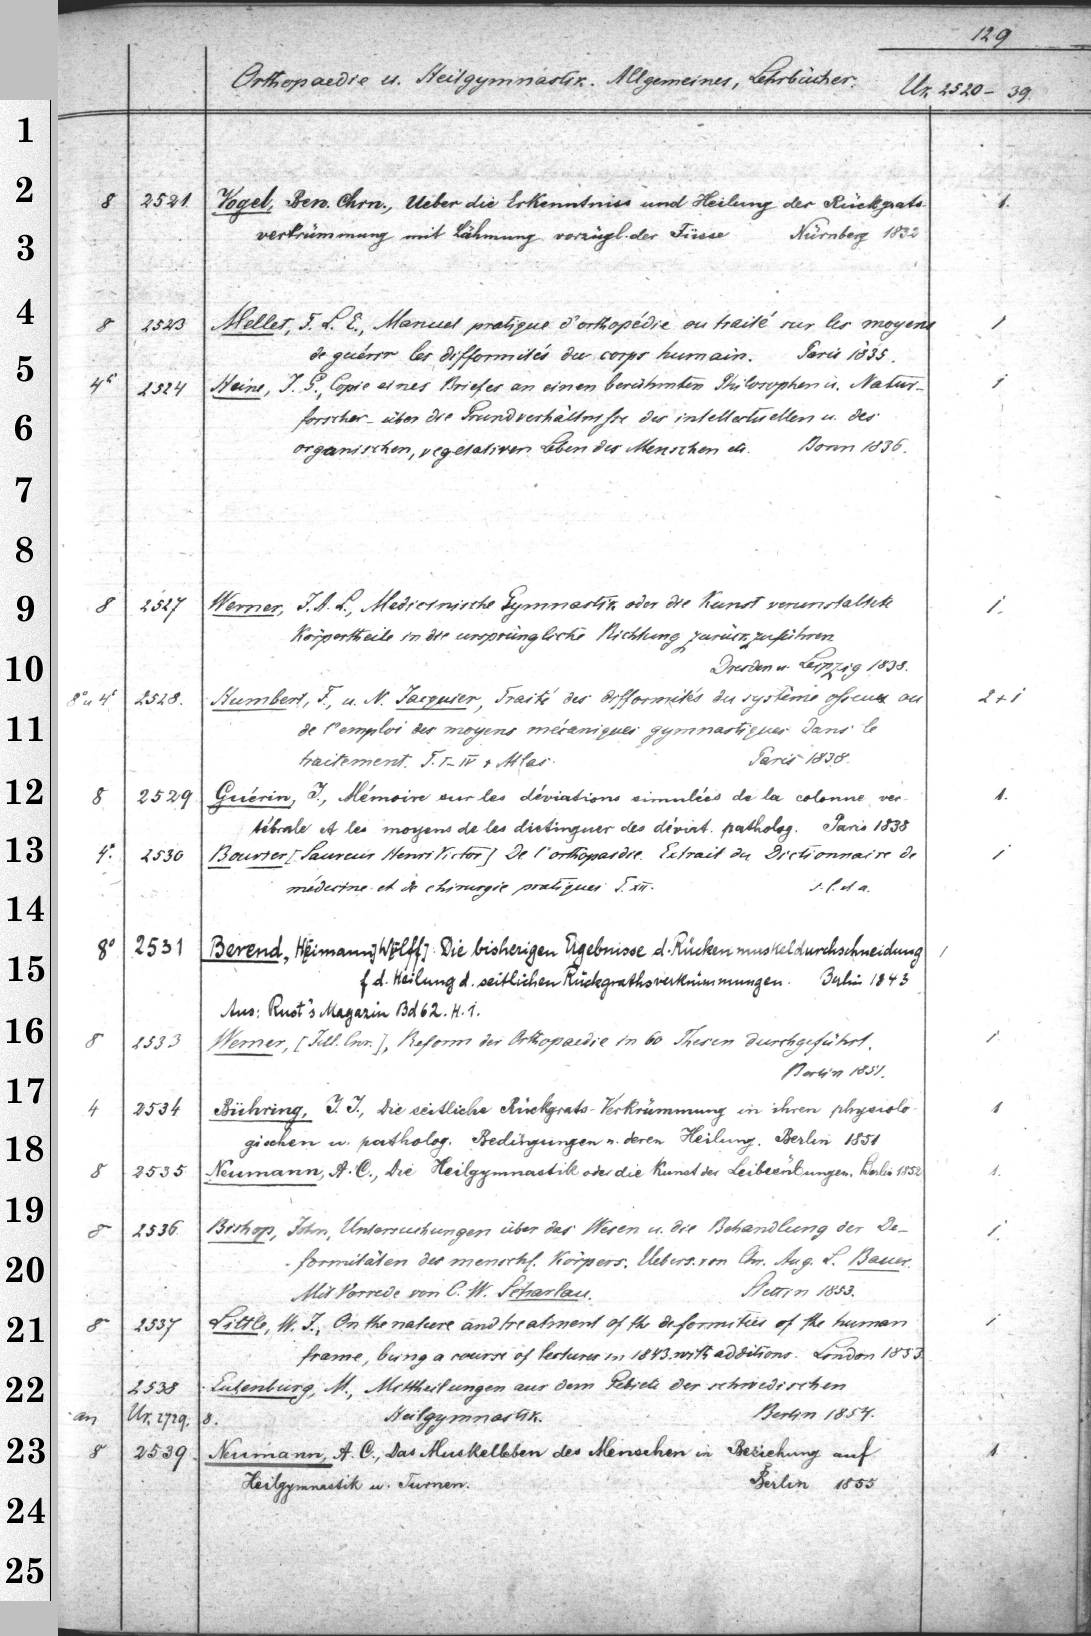 129
Orthopaedie u. Heilgymnastik. Allgemeines, Lehrbücher. Ur. 2520-39.
1
2
8 2521 Vogel, Ben. Chrn., Ueber die Erkenntniss und Heilung der Rückgrats- 1.
verkrümmung mit Lähmung vorzügl. der Füsse Nürnberg 1832
3
4
8 2523 Mellet, F. L. E., Manuel pratique d'orthopédie ou traité sur les moyens 1
de guérir les difformités du corps humain. Paris 1835.
5
4° 2524 Heine, J. G., Copie eines Briefes an einen berühmten Philosophen u. Natur- 1
forscher - über die Grundverhältnisse des intellectuellen u. des
6
organischen, vegetativen Leben des Menschen etc. Bonn 1836.
7
8
9
8 2527 Werner, J. A. L., Medicinische Gymnastik oder die Kunst verunstaltete 1.
Körpertheile in die ursprüngliche Richtung zurückzuführen
10
Dresden u. Leipzig 1838.
8° u 4° 2528. Humbert, F., u. N. Jacquier, Traité des difformités du système osseux ou 2+1
11
de l'emploi des moyens mécaniques gymnastiques dans le
traitement. T. I-IV + Atlas. Paris 1838.
12
8 2529 Guérin, J., Mémoire sur les déviations simulées de la colonne ver- 1.
tébrale et les moyens de les distinguer des déviat. patholog. Paris 1838
13
4°. 2530 Bouvier [Sauveur Henri Victor] De l'orthopaedie. Extrait du Dictionnaire de 1
médecine et de chirurgie pratiques T. XII. s. l. et a.
14
8° 2531 Berend, H[eimann] W[olff]. Die bisherigen Ergebnisse d. Rückenmuskeldurchschneidung 1
15
f. d. Heilung d. seitlichen Rückgrathsverkrümmungen. Berlin 1843
Aus: Rust's Magazin Bd 62. H. 1.
16
8 2533 Werner, Reform der Orthopaedie in 60 Thesen durchgeführt. 1
Berlin 1851.
17
4 2534 Bühring, J. J., Die seitliche Rückgrats-Verkrümmung in ihren physiolo- 1
gischen u. patholog. Bedingungen u. deren Heilung. Berlin 1851
18
8 2535 Neumann, A. C., Die Heilgymnastik oder die Kunst der Leibesübungen. Berlin 1852 1.
19
8 2536 Bishop, John, Untersuchungen über das Wesen u. die Behandlung der De- 1.
formitäten des menschl. Körpers. Uebers. von Chr. Aug. L. Bauer.
20
Mit Vorrede von C. W. Scharlau. Stettin 1853.
21
8 2537 Little, W. J., On the nature and treatment of the deformities of the human 1
frame, being a course of lectures in 1843. with additions. London 1853.
22
2538 Eulenburg, M., Mittheilungen aus dem Gebiete der schwedischen
an Ur. 2729. 8. Heilgymnastik. Berlin 1854.
23
8 2539 Neumann, A. C., Das Muskelleben des Menschen in Beziehung auf 1
Heilgymnastik u. Turnen. Berlin 1855
24
25